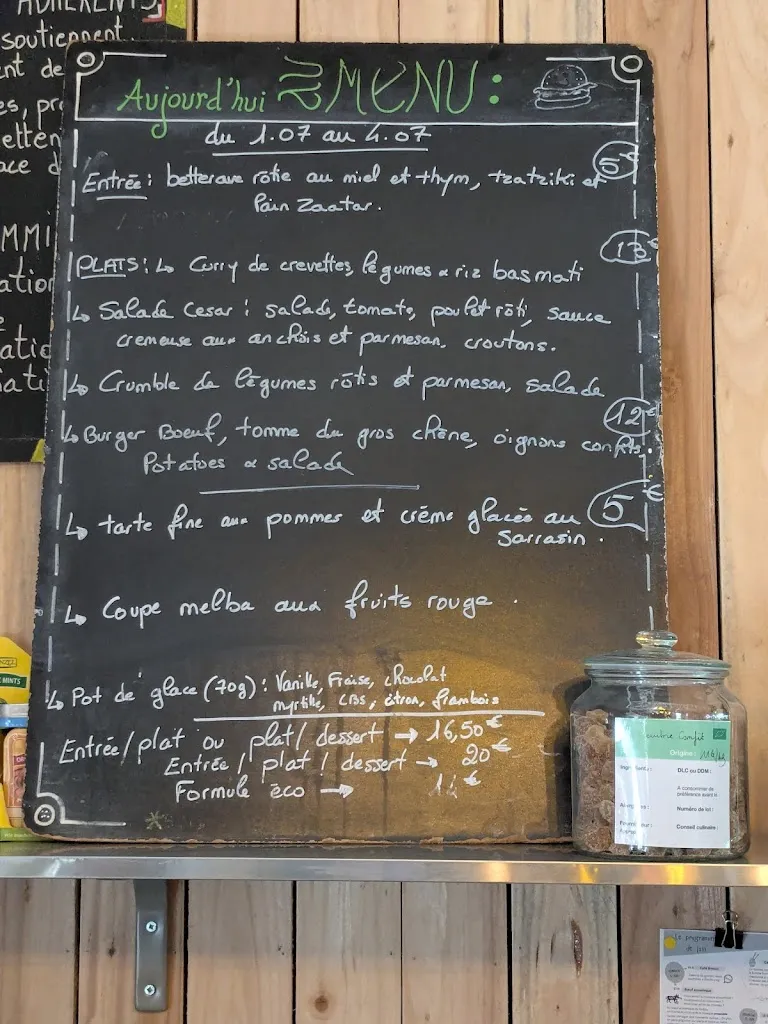 ADHERENTS
soutiennent
nt de
es, pro
etten
ace d
MMI
ation
atie
Aujourd'hui MENU :
du 1.07 au 4.07
5€
Entrée : betterave rôtie au miel et thym, tzatziki et
Pain Zaatar.
13€
PLATS : ↳ Curry de crevettes, légumes & riz basmati
↳ Salade Cesar : salade, tomate, poulet rôti, sauce
cremeuse aux anchois et parmesan, croutons.
↳ Crumble de légumes rôtis et parmesan, salade
12€
↳ Burger Boeuf, tomme du gros chêne, oignons confits.
Potatoes & salade
5€
↳ tarte fine aux pommes et crème glacée au
Sarrasin.
↳ Coupe melba aux fruits rouge.
↳ Pot de glace (70g) : Vanille, Fraise, chocolat
myrtille, CBS, citron, frambois
Entrée/plat ou plat/dessert → 16,50€
Entrée/plat/dessert → 20€
Formule éco → 14€
MINTS
Confit
Origine :
Ingrédients :
DLC ou DDM :
A consommer de
préférence avant le
Allergène :
Numéro de lot :
Fournisseur :
Conseil culinaire :
Le programme
de juil